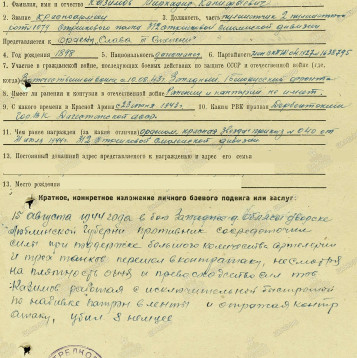 1. Фамилия, имя и отчество Казимов
2. Звание красноармеец 3. Должность, часть пулеметчик 2 пулеметной
роты 1079 стрелкового полка 312 стрелковой Смоленской дивизии
Представляется к ордену „Слава III степени"
4. Год рождения 1898 5. Национальность 6. Партийность
7. Участие в гражданской войне, последующих боевых действиях по защите СССР и отечественной войне (где,
когда) Отечественной войне с 10.08.43г. Западный
8. Имеет ли ранения и контузии в отечественной войне Ранений и контузий не имеет.
9. С какого времени в Красной Армии с июня 1942г. 10. Каким РВК призван
РВК Дагестанской АССР
11. Чем ранее награжден (за какие отличия) орденом Красная Звезда приказ №040 от
1944г. 312 стрелковой Смоленской дивизии
12. Постоянный домашний адрес представляемого к награждению и адрес его семьи
13. Место рождения
I. Краткое, конкретное изложение личного боевого подвига или заслуг:
15 августа 1944 года в бою Западнее д.
Люблинской Губернии противник сосредоточив
силы при поддержке большого количества артелерии
и трех танков перешел в контратаку, несмотря
на плотность огня и превосходство сил тов
Казимов работая с исключительной быстротой
по набивке патрон в ленты и отражая контр
атаку, убил 8 немцев